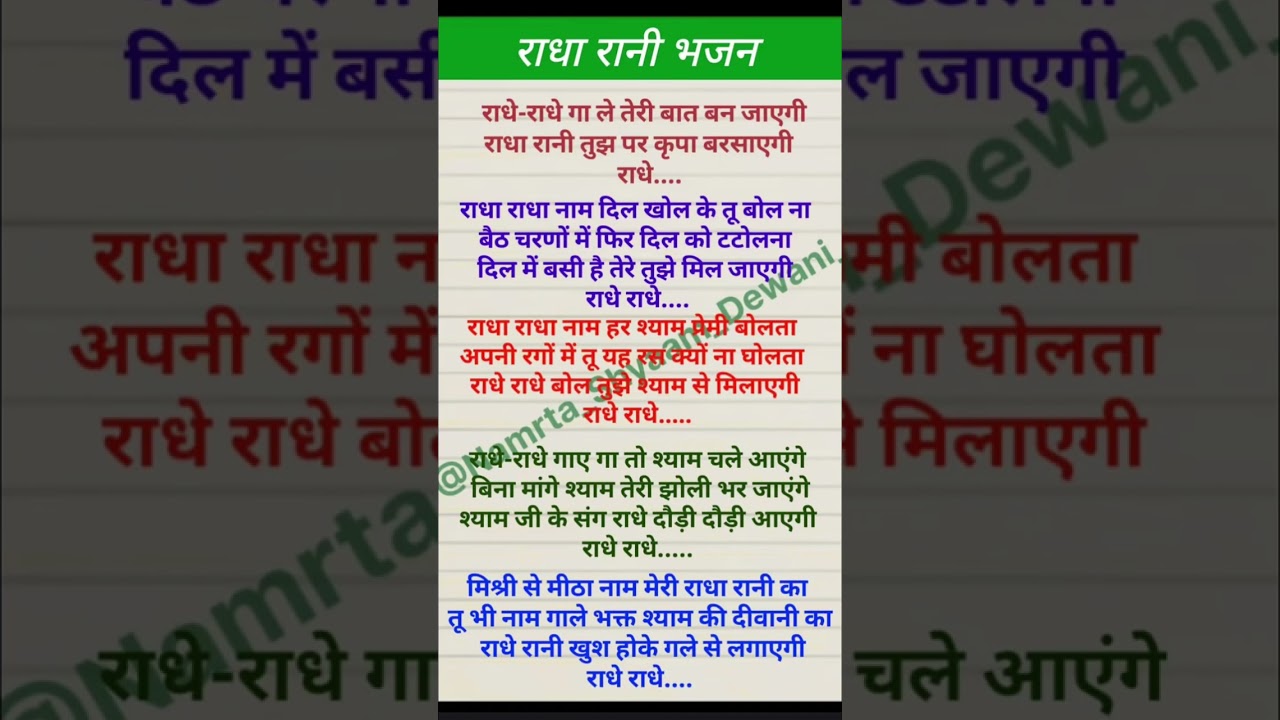 राधा रानी भजन
राधे-राधे गा ले तेरी बात बन जाएगी
राधा रानी तुझ पर कृपा बरसाएगी
राधे....
राधा राधा नाम दिल खोल के तू बोल ना
बैठ चरणों में फिर दिल को टटोलना
दिल में बसी है तेरे तुझे मिल जाएगी
राधे राधे....
राधा राधा नाम हर श्याम प्रेमी बोलता
अपनी रगों में तू यह रस क्यों ना घोलता
राधे राधे बोल तुझे श्याम से मिलाएगी
राधे राधे.....
राधे-राधे गाए गा तो श्याम चले आएंगे
बिना मांगे श्याम तेरी झोली भर जाएंगे
श्याम जी के संग राधे दौड़ी दौड़ी आएगी
राधे राधे.....
मिश्री से मीठा नाम मेरी राधा रानी का
तू भी नाम गाले भक्त श्याम की दीवानी का
राधे रानी खुश होके गले से लगाएगी
राधे राधे....
@Namrta_Shyaam_Dewani_
दिल में बसी
ल जाएगी
राधा राधा न
मी बोलता
अपनी रगों में
ना घोलता
राधे राधे बो
से मिलाएगी
राधे-राधे गा
चले आएंगे
@Namrta
_Dewani_